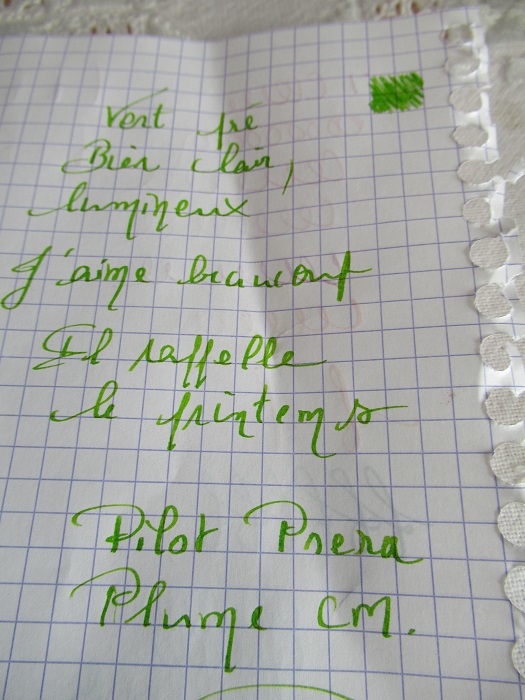 Vert pré
Bien clair,
lumineux
J'aime beaucoup
Il rappelle
le printemps
Pilot Prera
Plume CM.